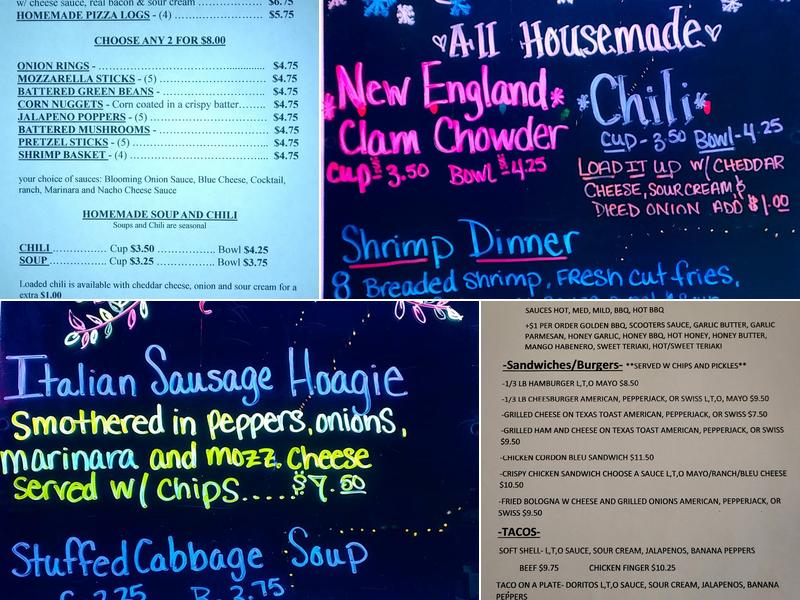 w/ cheese sauce, real bacon & sour cream ................ $6.75
HOMEMADE PIZZA LOGS - (4) $5.75
CHOOSE ANY 2 FOR $8.00
ONION RINGS - ................................................... $4.75
MOZZARELLA STICKS - (5) $4.75
BATTERED GREEN BEANS - $4.75
CORN NUGGETS - Corn coated in a crispy batter........ $4.75
JALAPENO POPPERS - (5) $4.75
BATTERED MUSHROOMS - $4.75
PRETZEL STICKS - (5) $4.75
SHRIMP BASKET - (4) $4.75
your choice of sauces: Blooming Onion Sauce, Blue Cheese, Cocktail,
ranch, Marinara and Nacho Cheese Sauce
HOMEMADE SOUP AND CHILI
Soups and Chili are seasonal
CHILI ........................ Cup $3.50 ........................ Bowl $4.25
SOUP ........................ Cup $3.25 ........................ Bowl $3.75
Loaded chili is available with cheddar cheese, onion and sour cream for a
extra $1.00
All Housemade
New England
Clam Chowder
Cup 3.50 Bowl 4.25
Chili
Cup - 3.50 Bowl - 4.25
LOAD IT UP W/ CHEDDAR
CHEESE, SOUR CREAM, &
DICED ONION ADD $1.00
Shrimp Dinner
8 Breaded shrimp, Fresh cut fries,
Italian Sausage Hoagie
Smothered in peppers, onions,
marinara and mozz. Cheese
served w/ chips.....$7.50
Stuffed Cabbage Soup
C 2.25 B 3.75
SAUCES HOT, MED, MILD, BBQ, HOT BBQ
+$1 PER ORDER GOLDEN BBQ, SCOOTERS SAUCE, GARLIC BUTTER, GARLIC
PARMESAN, HONEY GARLIC, HONEY BBQ, HOT HONEY, HONEY BUTTER,
MANGO HABENERO, SWEET TERIAKI, HOT/SWEET TERIAKI
-Sandwiches/Burgers- **SERVED W CHIPS AND PICKLES**
-1/3 LB HAMBURGER L,T,O MAYO $8.50
-1/3 LB CHEESBURGER AMERICAN, PEPPERJACK, OR SWISS L,T,O, MAYO $9.50
-GRILLED CHEESE ON TEXAS TOAST AMERICAN, PEPPERJACK, OR SWISS $7.50
-GRILLED HAM AND CHEESE ON TEXAS TOAST AMERICAN, PEPPERJACK, OR SWISS
$9.50
-CHICKEN CORDON BLEU SANDWICH $11.50
-CRISPY CHICKEN SANDWICH CHOOSE A SAUCE L,T,O MAYO/RANCH/BLEU CHEESE
$10.50
-FRIED BOLOGNA W CHEESE AND GRILLED ONIONS AMERICAN, PEPPERJACK, OR
SWISS $9.50
-TACOS-
SOFT SHELL- L,T,O SAUCE, SOUR CREAM, JALAPENOS, BANANA PEPPERS
BEEF $9.75 CHICKEN FINGER $10.25
TACO ON A PLATE- DORITOS L,T,O SAUCE, SOUR CREAM, JALAPENOS, BANANA
PEPPERS